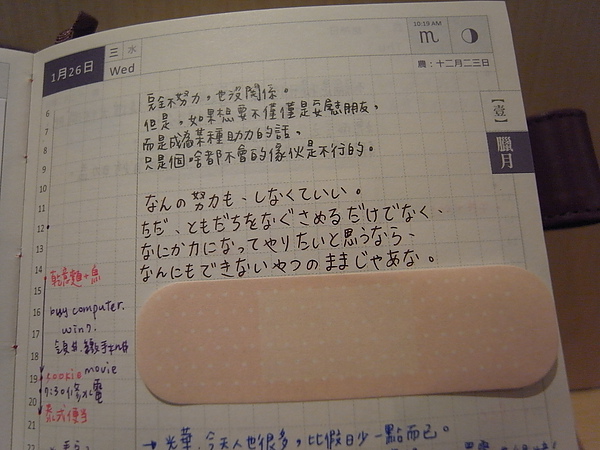 1月26日
三 水
Wed
10:19 AM
農:十二月二三日
【壹】
臘月
完全不努力,也沒關係。
但是,如果想要不僅僅是安慰朋友,
而是成為某種助力的話,
只是個啥都不會的傢伙是不行的。
なんの努力も、しなくていい。
ただ、ともだちをなぐさめるだけでなく、
なにか力になってやりたいと思うなら、
なんにもできないやつのままじゃあな。
6
7
8
9
10
11
12
13
14
15
16
17
18
19
20
21
乾意麵+魚
buy computer.
win7.
cookie movie
7:30 修水電
泰式便當
→ 光華,今天人也很多,比假日少一點而已。